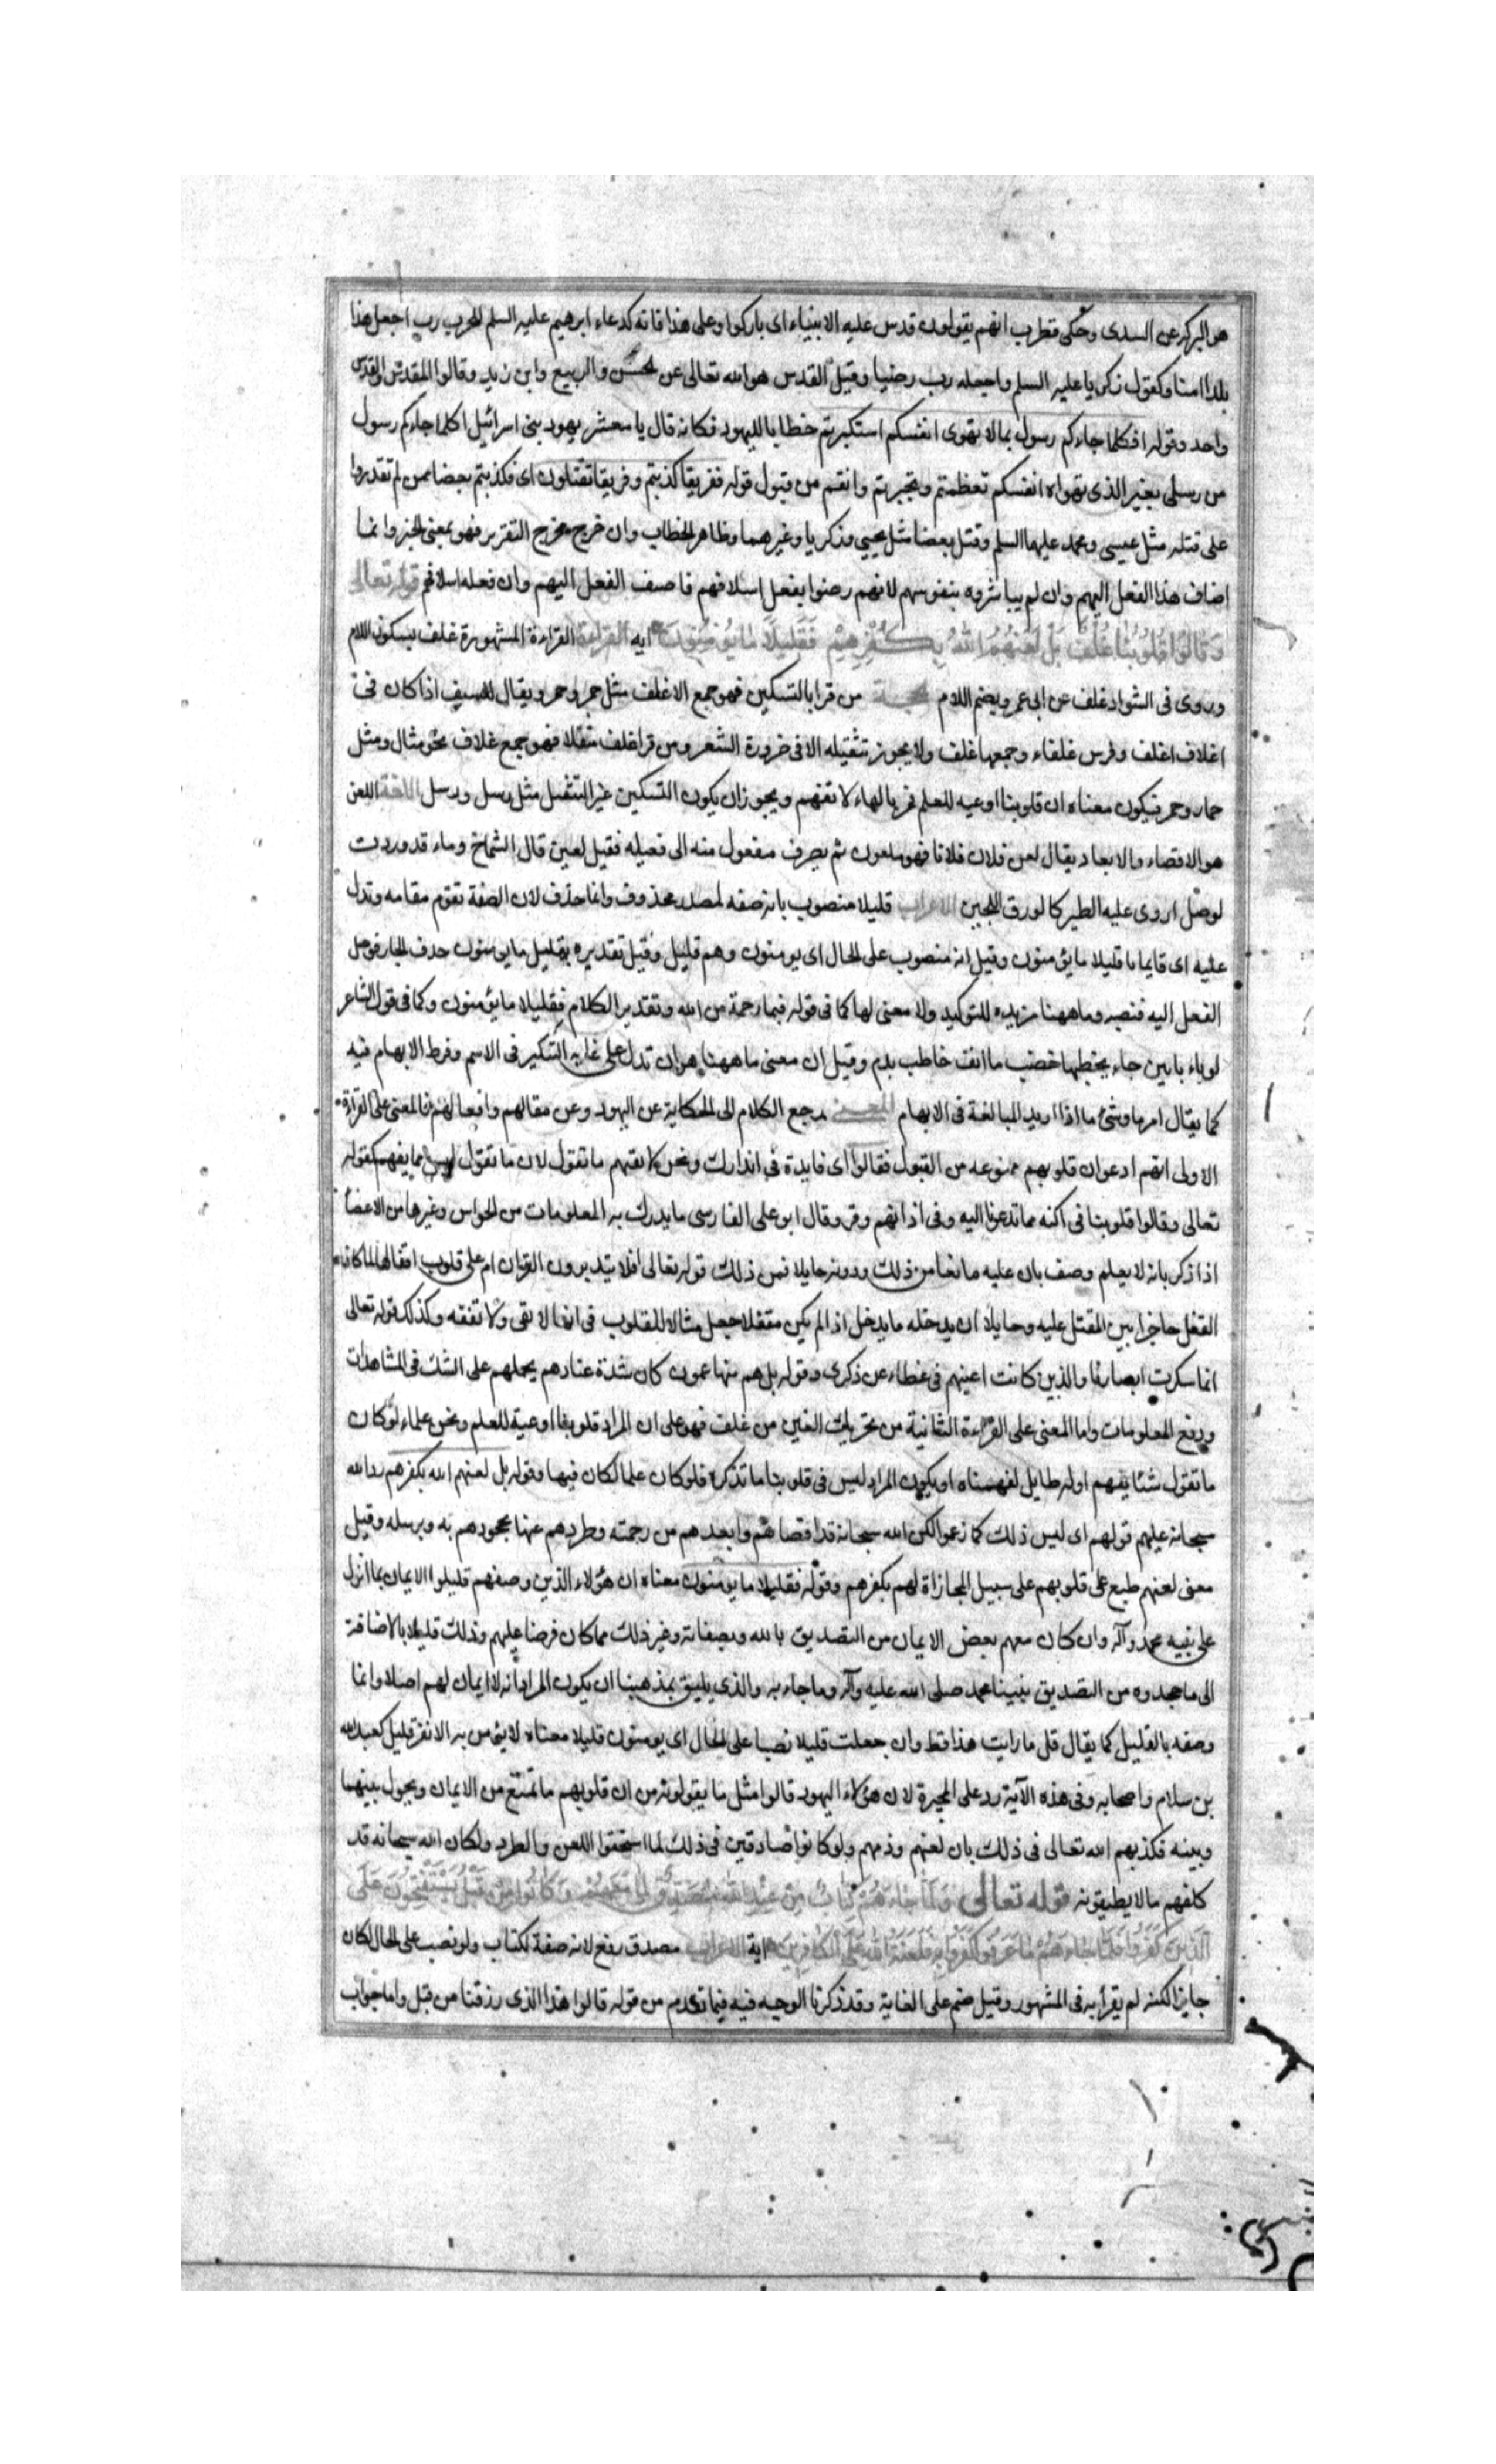 هو البركة عن السدى وحكى قطرب انهم يقولون قدس عليه الانبياء اى باركوا وعلى هذا فانه كدعاء ابرهيم عليه السلم للحرم رب اجعل هذا
بلدا امنا وكقول زكريا عليه السلم واجعله رب رضيا وقيل القدس هو الله تعالى عن الحسن والربيع وابن زيد وقالوا المقدس والقدس
واحد وقوله افكلما جاءكم رسول بما لا تهوى انفسكم استكبرتم خطابا لليهود فكانه قال يا معشر يهود بنى اسرائيل اكلما جاءكم رسول
من رسلى بغير الذى تهواه انفسكم تعظمتم وتجبرتم وانفتم من قبول قوله ففريقا كذبتم وفريقا تقتلون اى فكذبتم بعضا ممن لم تقدروا
على قتله مثل عيسى ومحمد عليهما السلم وقتل بعضا مثل يحيى وذكريا وغيرهما وظاهر الخطاب وان خرج مخرج التقرير فهو بمعنى الخبر وانما
اضاف هذا الفعل اليهم وان لم يباشروه بنفوسهم لانهم رضوا بفعل اسلافهم فاضيف الفعل اليهم وان فعله اسلافهم قوله تعالى
وَقَالُوا قُلُوبُنَا غُلْفٌ بَلْ لَعَنَهُمُ اللّٰهُ بِكُفْرِهِمْ فَقَلِيلًا مَا يُؤْمِنُونَ ايه القراءة القراءة المشهورة غلف بسكون اللام
وروى فى الشواذ غلف عن ابى عمرو بضم اللام الحجة من قرا بالتسكين فهو جمع الاغلف مثل حمر واحمر ويقال للسيف اذا كان فى
اغلاف اغلف وقوس غلفاء وجمعها غلف ولا يجوز تثقيله الا فى ضرورة الشعر ومن قرا غلف مثقلا فهو جمع غلاف نحو مثال ومثل
حمار وحمر فيكون معناه ان قلوبنا اوعيه للعلم فما بالها لا تفهم ويجوز ان يكون التسكين عن التثقيل مثل رسل ورسل اللغة اللعن
هو الاقصاء والابعاد يقال لعن فلان فلانا فهو ملعون ثم يصرف مفعول منه الى فعيله فقيل لعين قال الشماخ وماء قد وردت
لوصل اروى عليه الطير كالورق اللجين الاعراب قليلا منصوب بانه صفه لمصدر محذوف وانما حذف لان الصفة تقوم مقامه وتدل
عليه اى فايمانا قليلا ما يؤمنون وقيل انه منصوب على الحال اى يومنون وهم قليل وقيل تقديره بقليل ما يومنون حذف الجار فوصل
الفعل اليه فنصبه وما ههنا مزيده للتوكيد ولا معنى لها كما فى قوله فبما رحمة من الله وتقدير الكلام فقليلا ما يؤمنون وكما فى قول الشاعر
لو باء بابين جاء يخطبها خضب ما انف خاطب بدم وقيل ان معنى ما ههنا هو ان تدل على غايه التنكير فى الاسم وفرط الابهام فيه
كما يقال امر ما وشئ ما اذا اريد المبالغة فى الابهام المعنى رجع الكلام الى الحكاية عن اليهود وعن مقالهم وافعالهم فالمعنى على القراءة
الاولى انهم ادعوا ان قلوبهم ممنوعه من القبول فقالوا اى فايدة فى انذارك ونحن لا نفهم ما تقول لان ما تقول ليس مما يفهم كقوله
تعالى وقالوا قلوبنا فى اكنه مما تدعونا اليه وفى اذانهم وقر وقال ابو على الفارسى ما يدرك به المعلومات من الحواس وغيرها من الاعضاء
اذا ذكر بانه لا يعلم وصف بان عليه مانعا من ذلك ودونه حايلا فمن ذلك قوله تعالى افلا يتدبرون القران ام على قلوب اقفالها لما كان
القفل حاجزا بين المقفل عليه وحايلا ان يدخله ما يدخل اذا لم يكن مقفلا جعل مثالا للقلوب فى انها لا تعى ولا تفقه وكذلك قوله تعالى
انما سكرت ابصارنا والذين كانت اعينهم فى غطاء عن ذكرى وقوله بل هم منها عمون كان شدة عنادهم يحملهم على الشك فى المشاهدات
ودفع المعلومات واما المعنى على القراءة الثانية من تحريك العين من غلف فهو على ان المراد قلوبنا اوعية للعلم ونحن علماء لو كان
ما تقول شئا يفهم او له طايل لفهمناه او يكون المراد ليس فى قلوبنا ما تذكره فلو كان علما لكان فيها وقوله بل لعنهم الله بكفرهم رد الله
سبحانه عليهم قولهم اى ليس ذلك كما زعموا لكن الله سبحانه قد اقصاهم وابعدهم من رحمته وطردهم عنها بجحودهم به وبرسله وقيل
معنى لعنهم طبع على قلوبهم على سبيل المجازاة لهم بكفرهم وقوله فقليلا ما يومنون معناه ان هؤلاء الذين وصفهم قليلوا الايمان بما انزل
على نبيه محمد وآله وان كان معهم بعض الايمان من التصديق بالله وبصفاته وغير ذلك مما كان فرضا عليهم وذلك قليلا بالاضافة
الى ما جحدوه من التصديق بنبينا محمد صلى الله عليه وآله وما جاء به والذى يليق بمذهبنا ان يكون المراد انه لا ايمان لهم اصلا وانما
وصفه بالقليل كما يقال قل ما رايت هذا قط وان جعلت قليلا نصبا على الحال اى يومنون قليلا معناه لا يؤمن به الا نفر قليل كعبد الله
بن سلام واصحابه وفى هذه الآية رد على المجبرة لان هؤلاء اليهود قالوا مثل ما يقولونه من ان قلوبهم ما تمنع من الايمان ويحول بينها
وبينه فكذبهم الله تعالى فى ذلك بان لعنهم وذمهم ولو كانوا صادقين فى ذلك لما استحقوا اللعن والطرد ولكان الله سبحانه قد
كلفهم ما لا يطيقونه قوله تعالى وَلَمَّا جَاءَهُمْ كِتَابٌ مِنْ عِنْدِ اللّٰهِ مُصَدِّقٌ لِمَا مَعَهُمْ وَكَانُوا مِنْ قَبْلُ يَسْتَفْتِحُونَ عَلَى
الَّذِينَ كَفَرُوا فَلَمَّا جَاءَهُمْ مَا عَرَفُوا كَفَرُوا بِهِ فَلَعْنَةُ اللّٰهِ عَلَى الْكَافِرِينَ اية الاعراب مصدق رفع لانه صفة لكتاب ولو نصب على الحال لكان
جايزا لكنه لم يقرأ به فى المشهور وقيل ضم على الغاية وقد ذكرنا الوجه فيه فيما تقدم من قوله قالوا هذا الذى رزقنا من قبل واما جواب